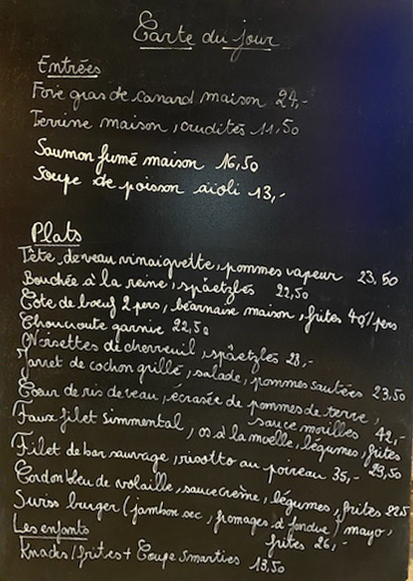 Carte du jour
Entrées
Foie gras de canard maison 24,-
Terrine maison, crudités 11,50
Saumon fumé maison 16,50
Soupe de poisson aïoli 13,-
Plats
Tête de veau vinaigrette, pommes vapeur 23,50
Bouchée à la reine, spaetzles 22,50
Côte de bœuf 2 pers, béarnaise maison, frites 40/pers
Choucroute garnie 22,50
Noisettes de chevreuil, spaetzles 28,-
Jarret de cochon grillé, salade, pommes sautées 23,50
Cœur de ris de veau, écrasée de pommes de terre,
sauce morilles 42,-
Faux filet simmental, os à la moelle, légumes, frites
Filet de bar sauvage, risotto au poireau 35,- 23,50
Cordon bleu de volaille, sauce crème, légumes, frites
Suiss burger (jambon sec, fromages à fondue, mayo,
frites 26,-
Les enfants
Knacks/frites + Coupe Smarties 13,50